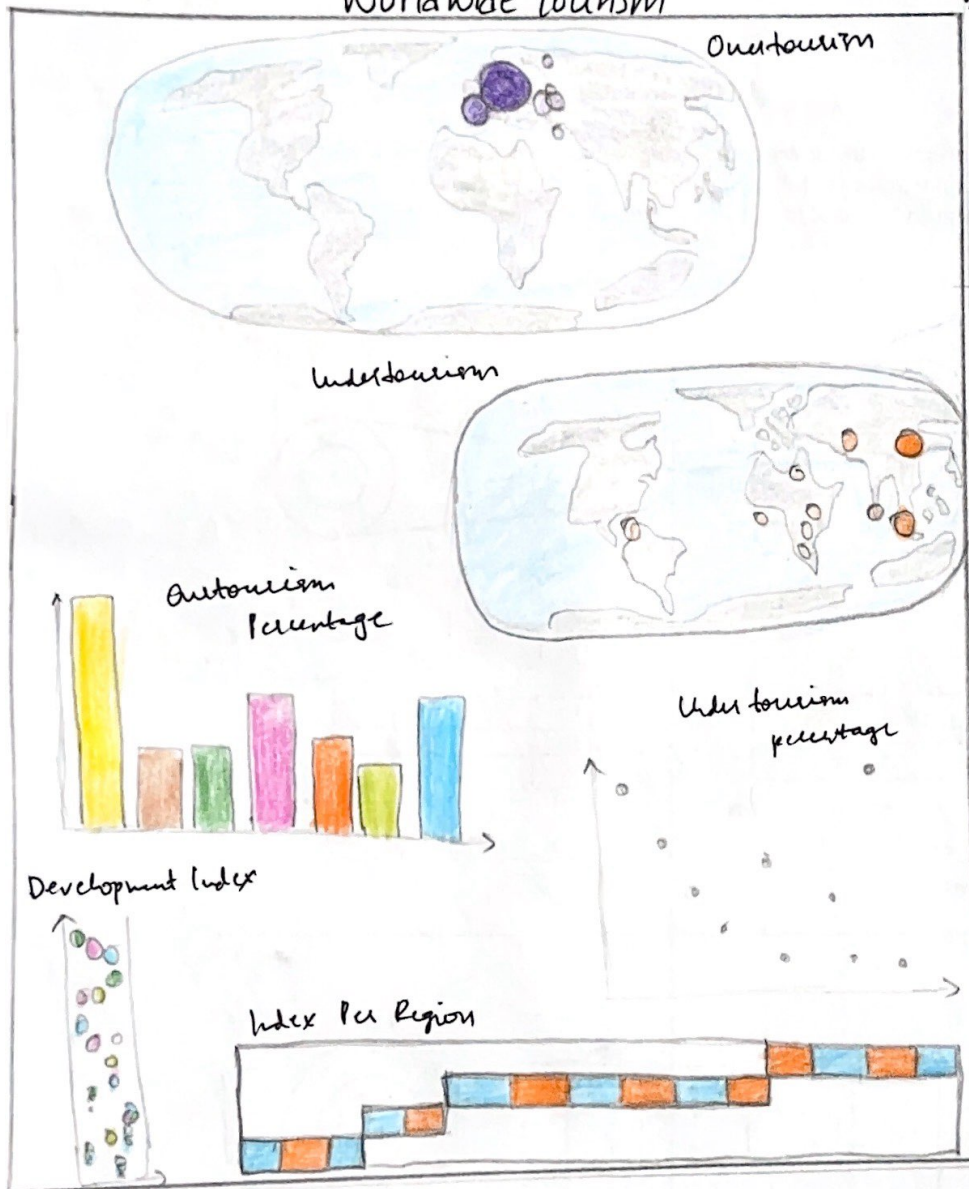 Worldwide tourism
Overtourism
Undertourism
Overtourism
Percentage
Undertourism
percentage
Development Index
Index Per Region